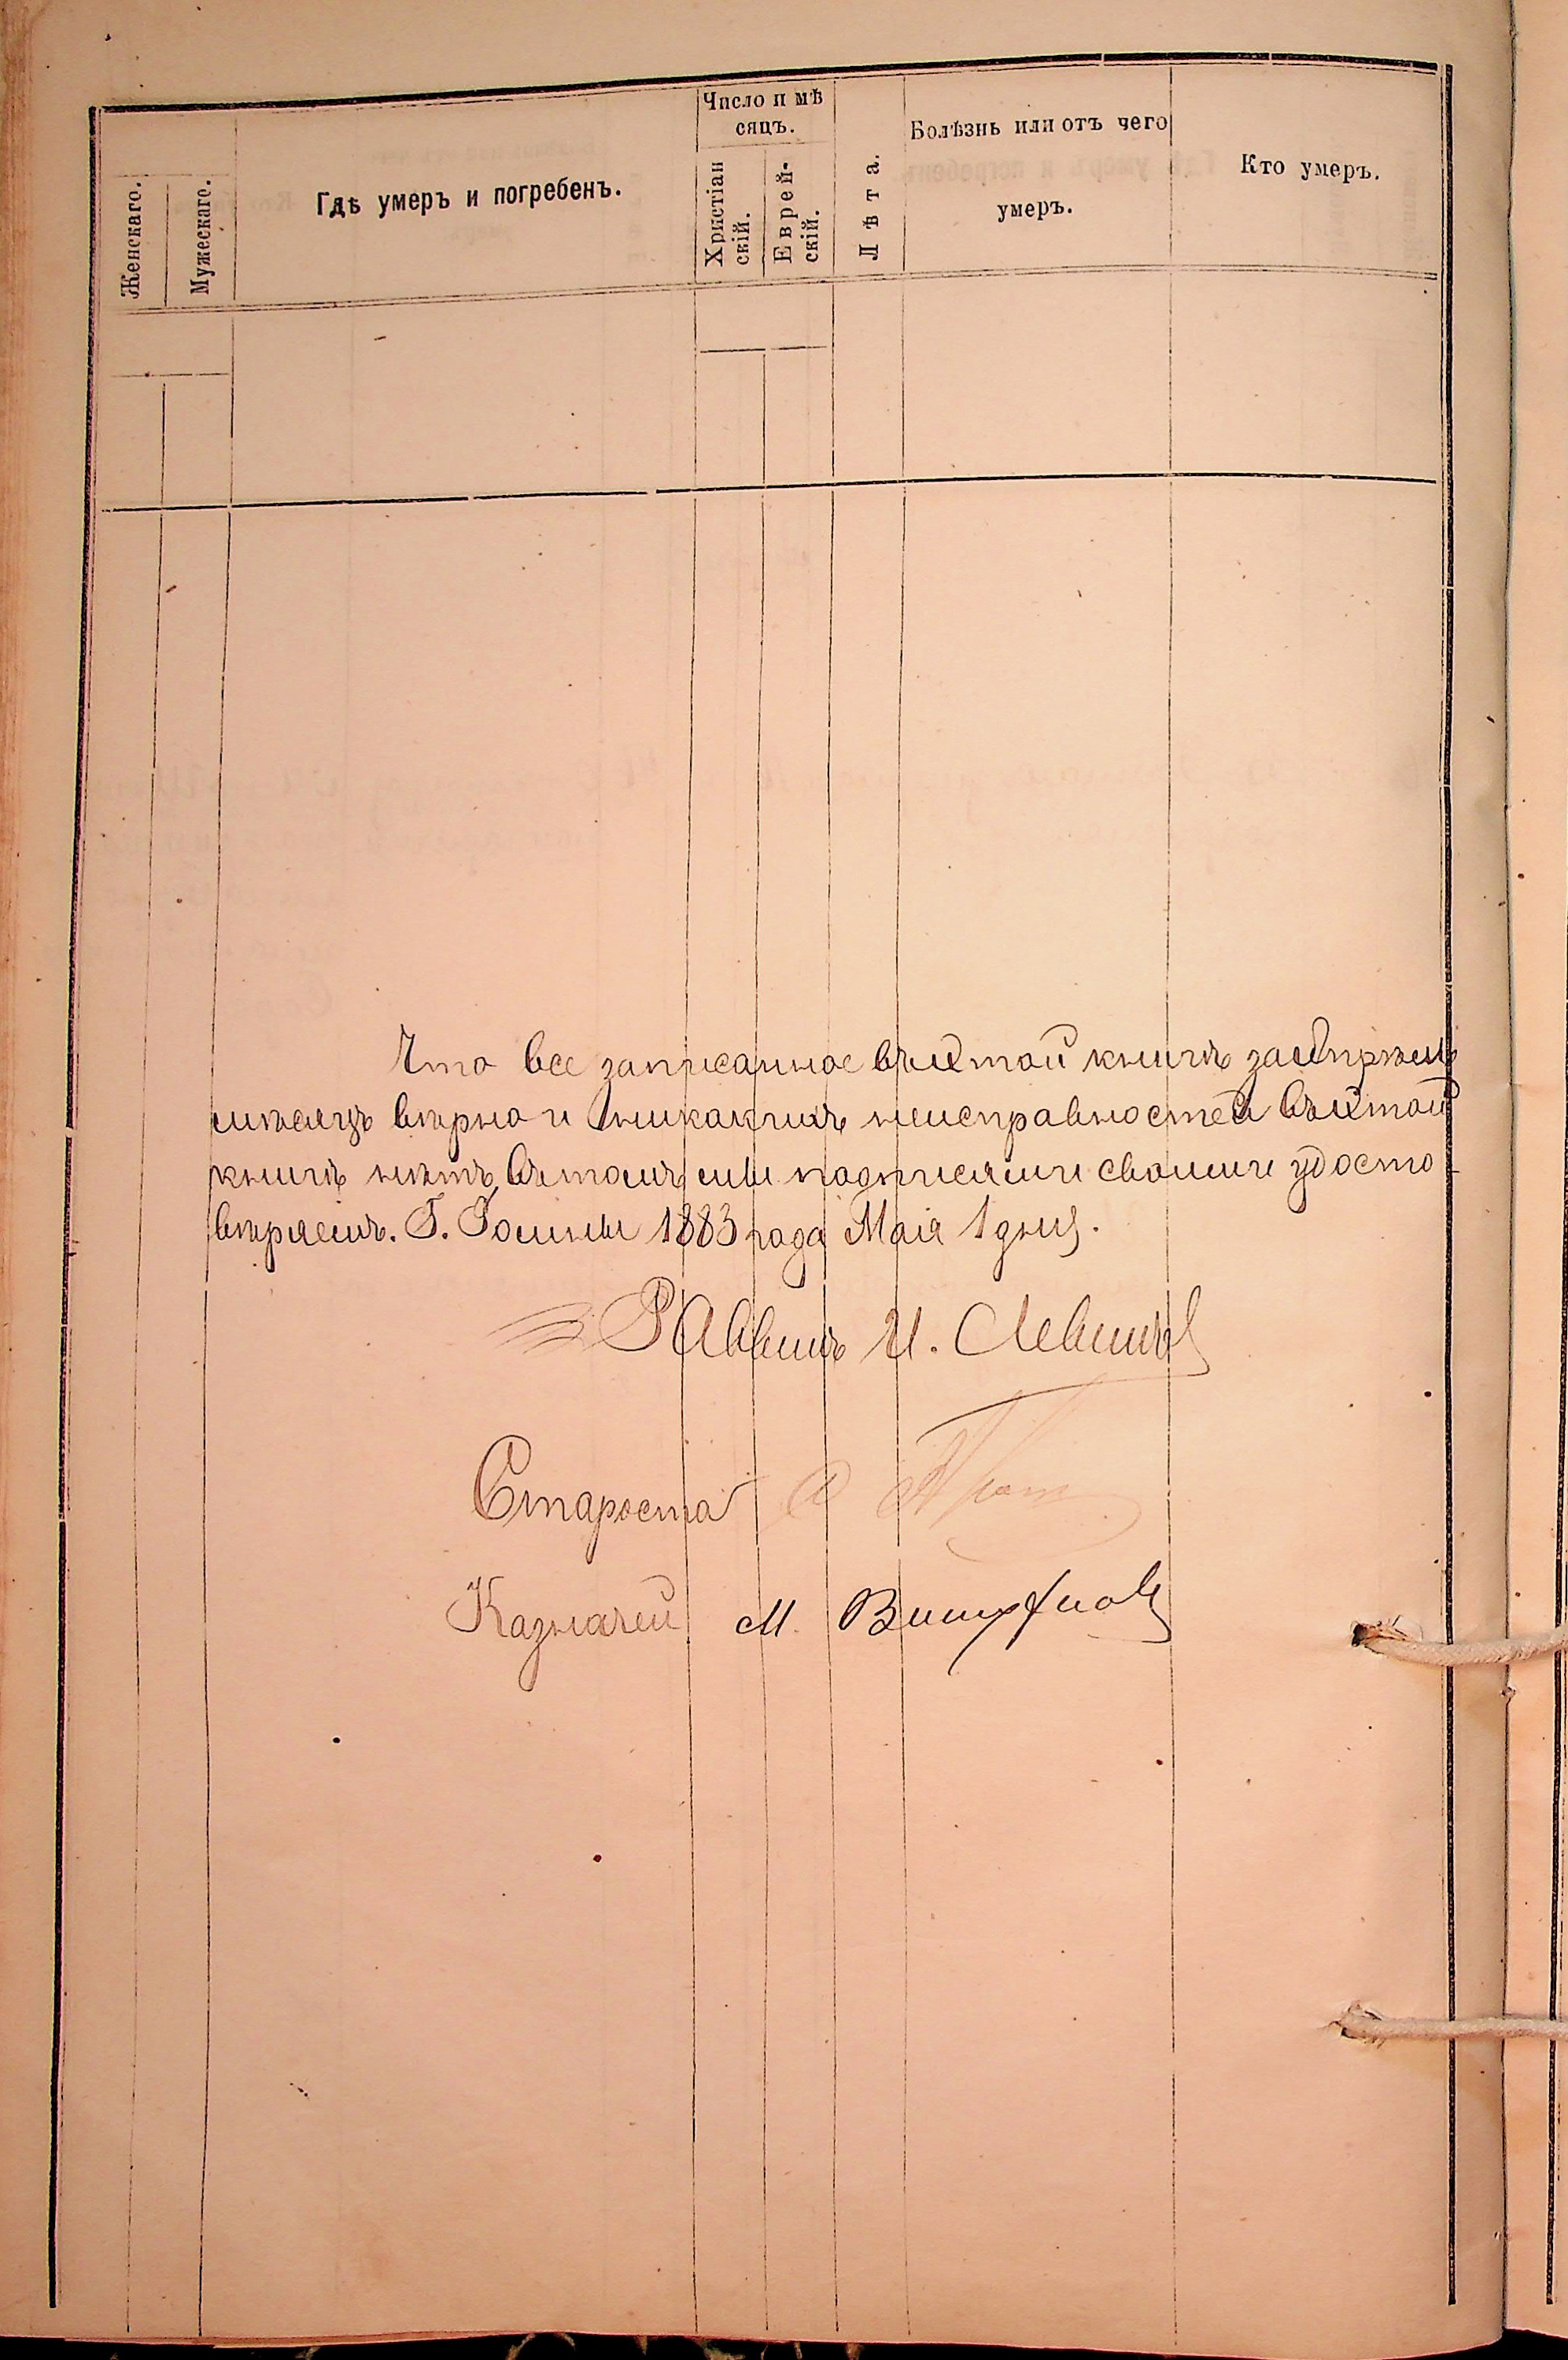 Женскаго.
Мужескаго.
Гдѣ умеръ и погребенъ.
Число и мѣ
сяцъ.
Христіан
скій.
Еврей-
скій.
Лѣта.
Болѣзнь или отъ чего
умеръ.
Кто умеръ.
Что все записанное въ этой книгѣ за Апрѣль
мѣсяцъ вѣрно и никакихъ неисправностей въ этой
книгѣ нѣтъ, въ томъ мы подписями своими удосто-
вѣряемъ. Г. Ромны 1883 года Мая 1 дня.
Раввинъ И. Левинъ
Староста
Казначей М.